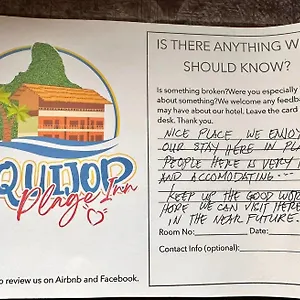 QUIJOR
Plage Inn
o review us on Airbnb and Facebook.
IS THERE ANYTHING W
SHOULD KNOW?
Is something broken?Were you especially
about something?We welcome any feedba
may have about our hotel. Leave the card
desk. Thank you.
NICE PLACE WE ENJOY
OUR STAY HERE IN PLA
PEOPLE HERE IS VERY
AND ACCOMODATING
KEEP UP THE GOOD WOR
HOPE WE CAN VISIT HERE
IN THE NEAR FUTURE.
Room No: Date:
Contact Info (optional):